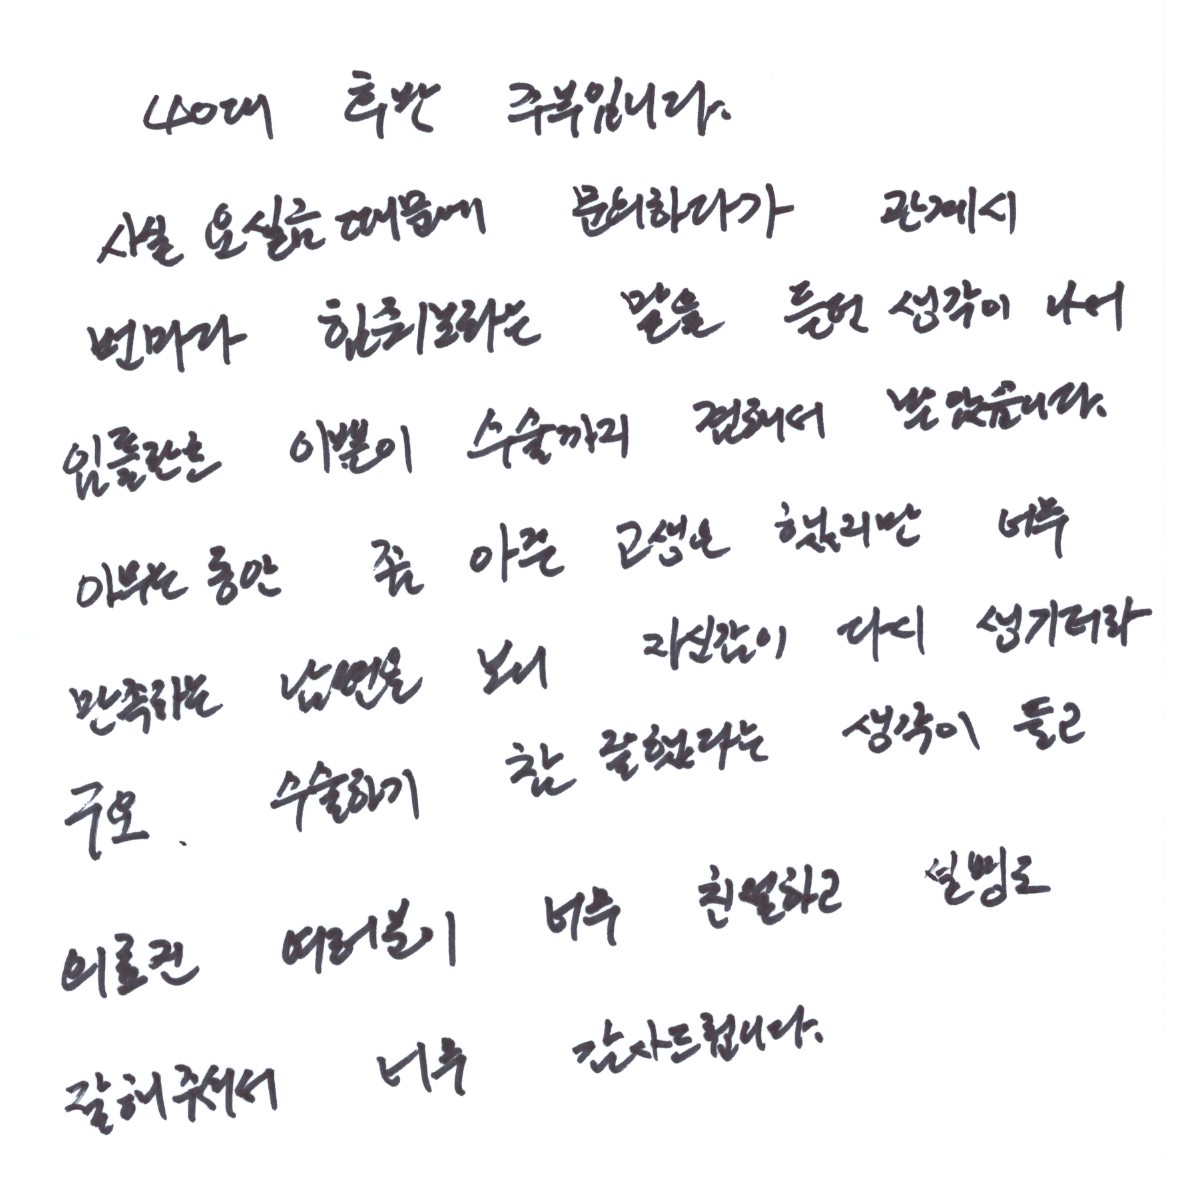 40대 후반 주부입니다.
사실 요실금 때문에 문의하다가 관계시
번마다 힘줘보라는 말을 듣던 생각이 나서
임플란트 이쁜이 수술까지 겸해서 받았습니다.
아무는 동안 좀 아픈 고생은 했지만 너무
만족하는 남편을 보니 자신감이 다시 생기더라
구요. 수술하기 참 잘했다는 생각이 들고
의료진 여러분이 너무 친절하고 설명도
잘해주셔서 너무 감사드립니다.